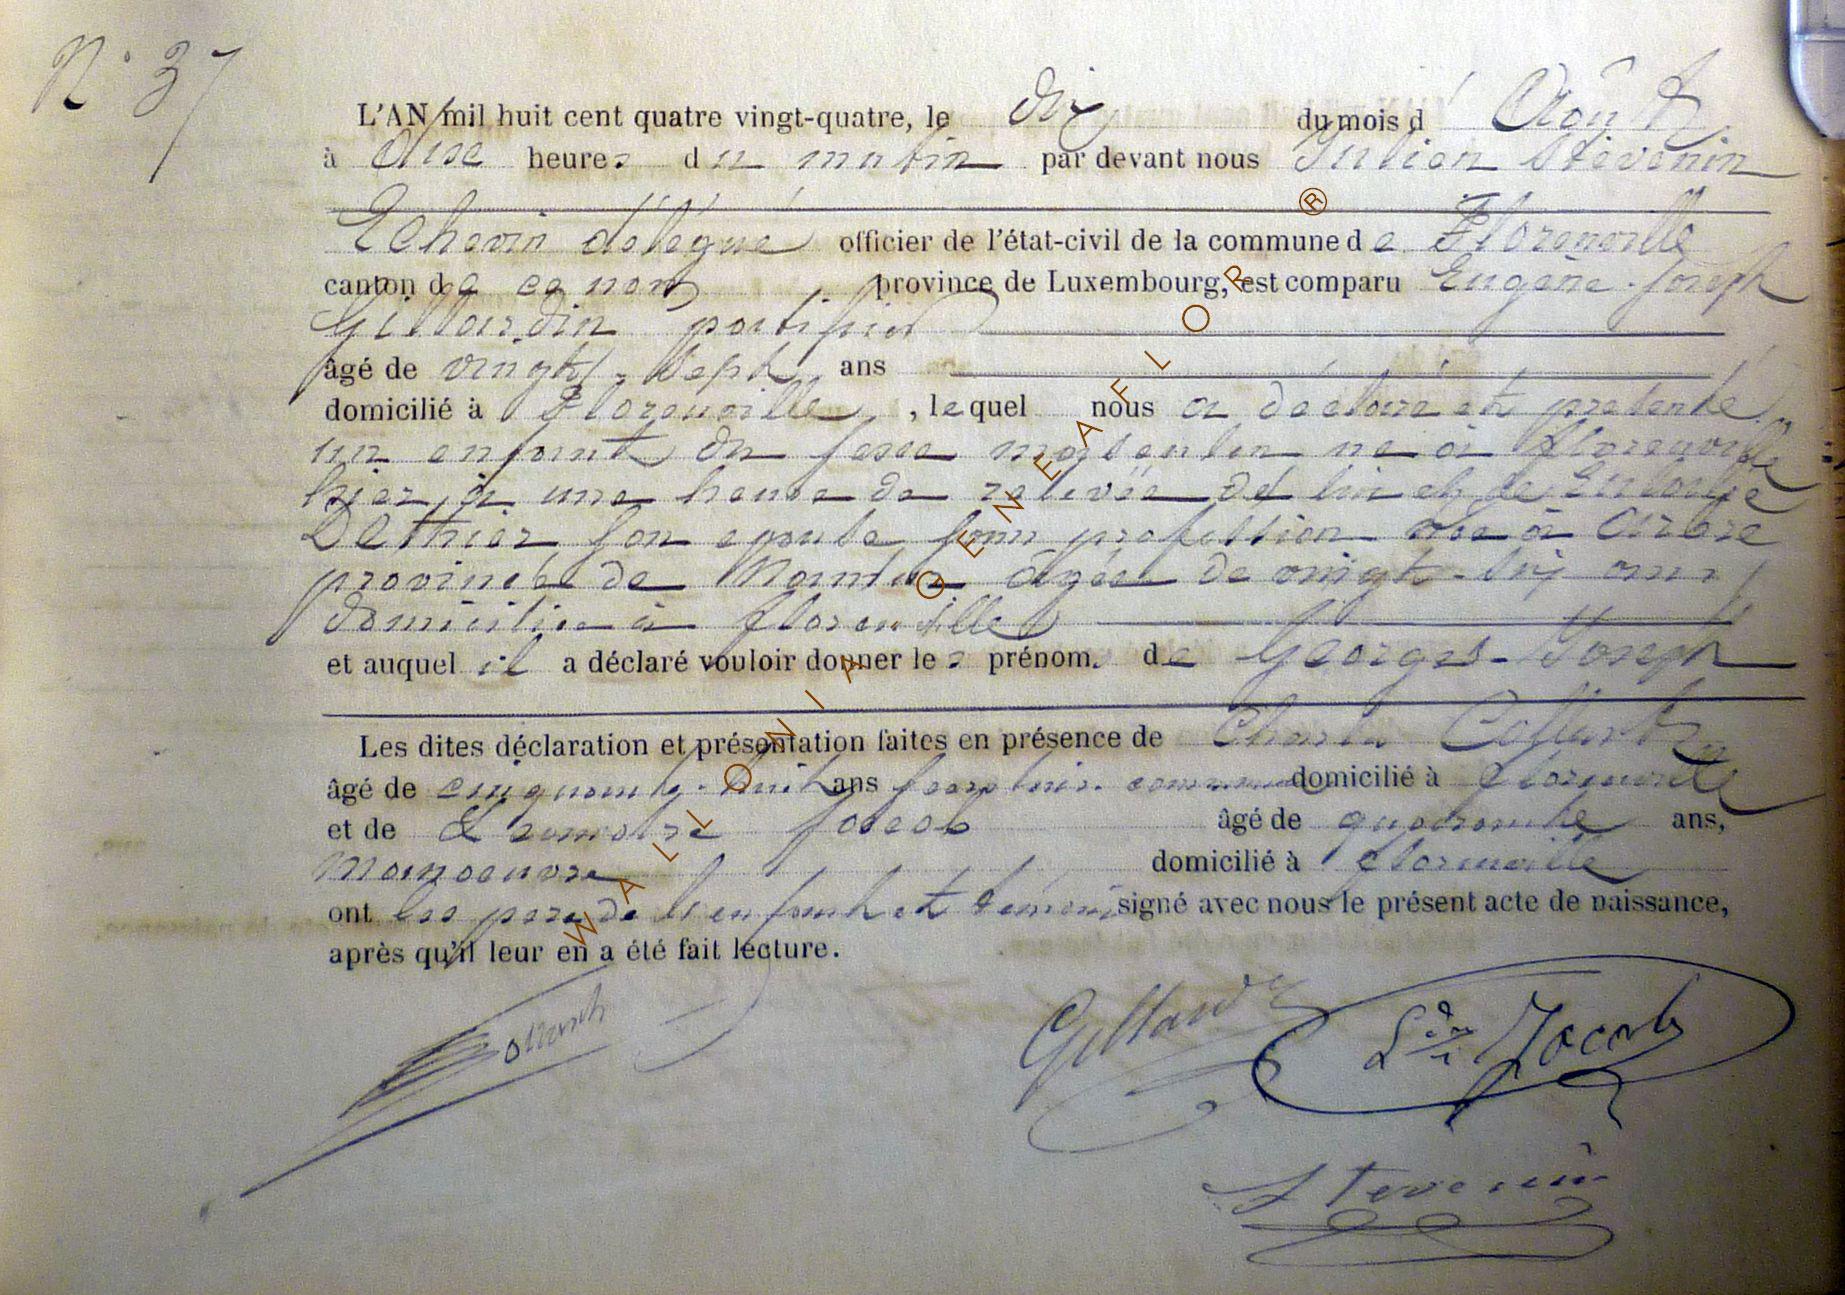 N° 37
L'AN mil huit cent quatre vingt-quatre, le dix du mois d'Août
à dise heures du matin par devant nous Julien Stévenin
Echevin délégué officier de l'état-civil de la commune de Florenville
canton de ce nom province de Luxembourg, est comparu Eugène-Joseph
Gillardin
âgé de vingt-sept ans
domicilié à Florenville, lequel nous a déclaré et présenté
un enfant du sexe masculin né à Florenville
hier, à une heure de relevée de lui et de
Dethier son épouse sans profession née à Arbre
province de Namur âgée de vingt-six ans
domiciliée à Florenville
et auquel il a déclaré vouloir donner les prénoms de Georges-Joseph
Les dites déclaration et présentation faites en présence de Charles
âgé de cinquante-huit ans domicilié à Florenville
et de Jacob âgé de quarante ans,
manoeuvre domicilié à Florenville
ont les père de l'enfant et témoins signé avec nous le présent acte de naissance,
après qu'il leur en a été fait lecture.
Jacob
Stevenin
WALLONIA GENEAFLOR ®